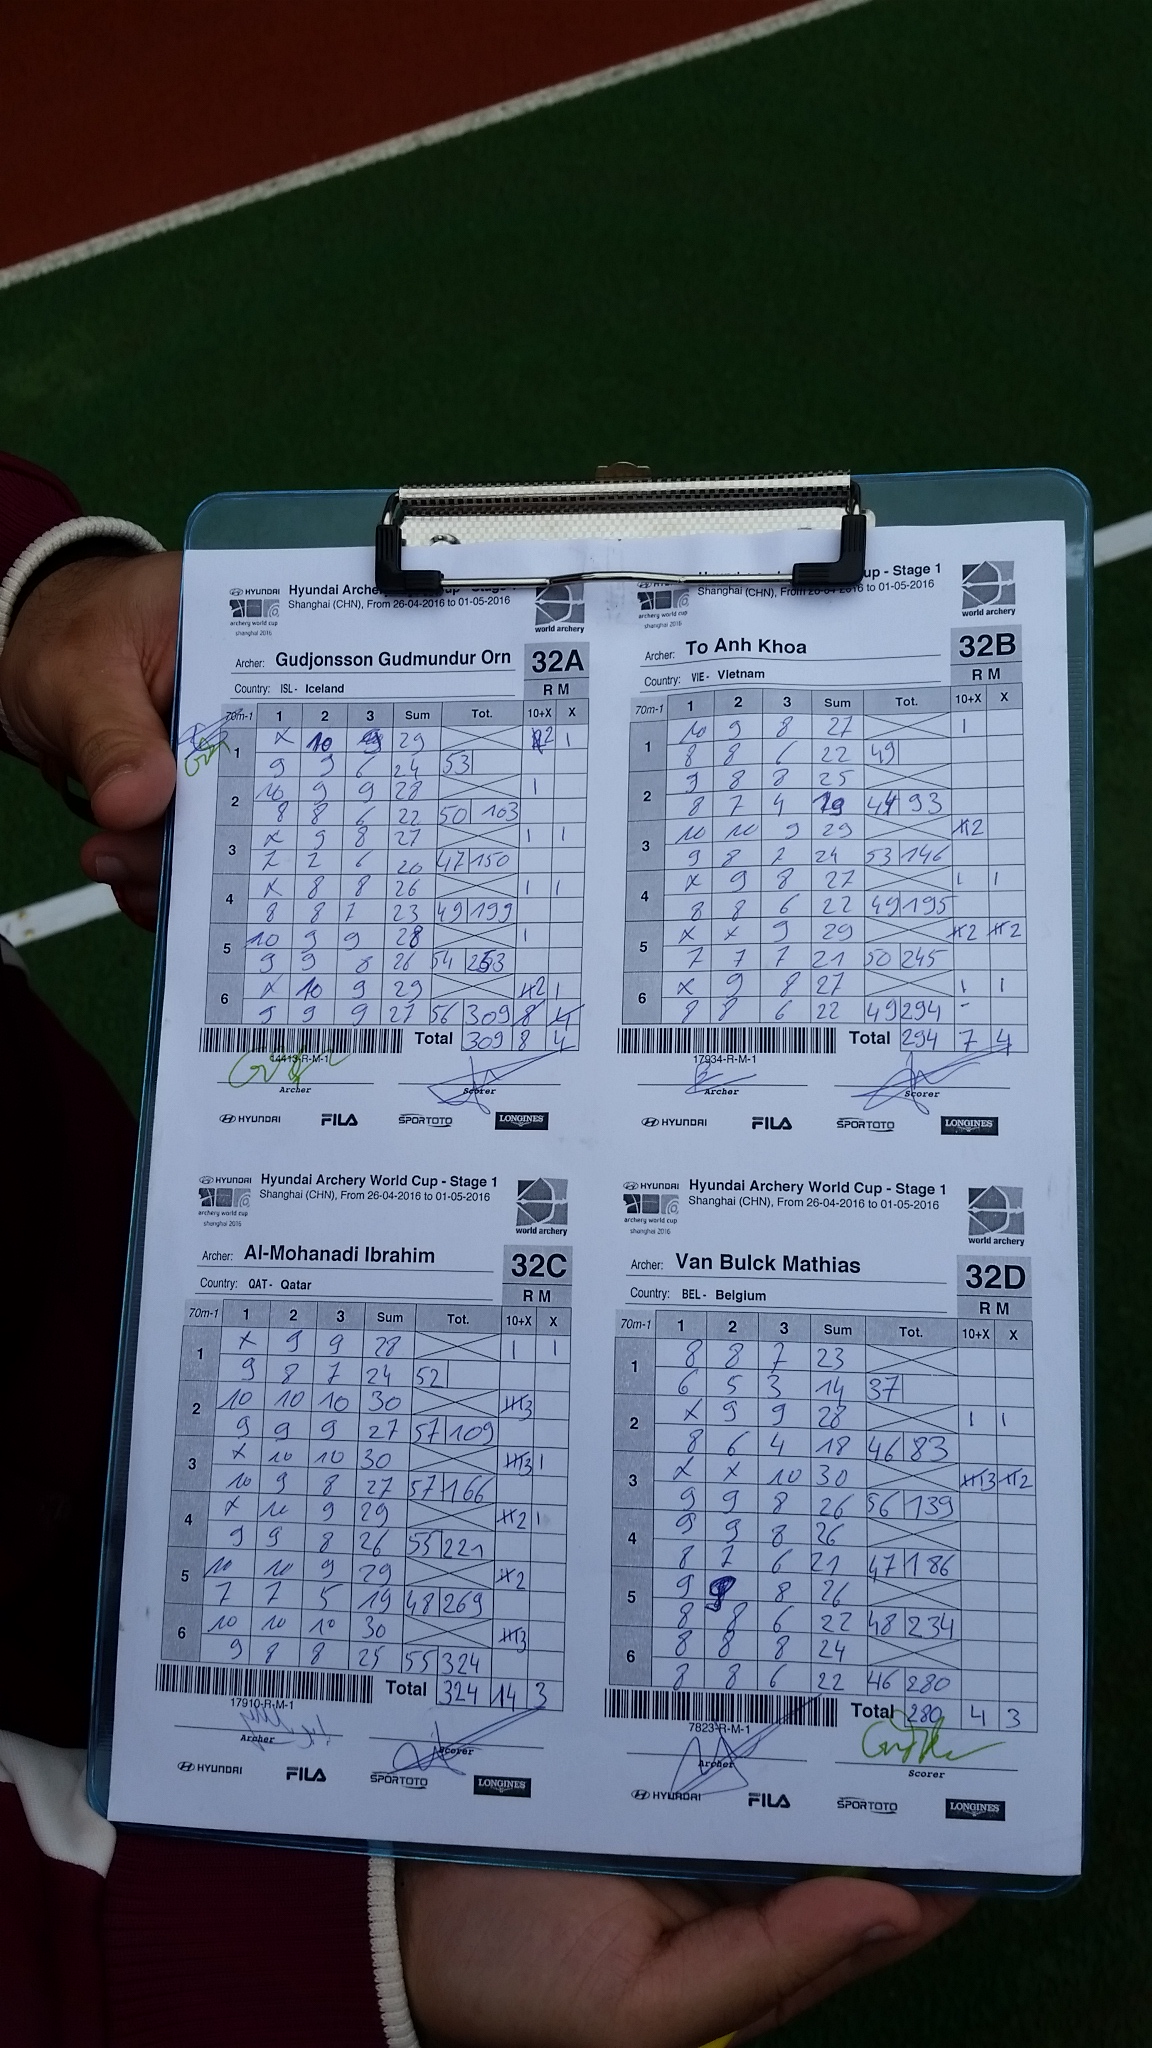 HYUNDAI Hyundai Archery
Shanghai (CHN), From 26-04-2016 to 01-05-2016
archery world cup
shanghai 2016
world archery
Archer: Gudjonsson Gudmundur Orn 32A
Country: ISL - Iceland R M
70m-1 1 2 3 Sum Tot. 10+X X
1 X 10 9 29 2 1
9 9 6 24 53
2 10 9 9 28 1
8 8 6 22 50 103
3 X 9 8 27 1 1
7 7 6 20 47 150
4 X 8 8 26 1 1
8 8 7 23 49 199
5 10 9 9 28 1
9 9 8 26 54 253
6 X 10 9 29 2 1
9 9 9 27 56 309 8 4
Total 309 8 4
14413-R-M-1
Archer Scorer
HYUNDAI FILA SPORTOTO LONGINES
HYUNDAI up - Stage 1
Shanghai (CHN), From 26-04-2016 to 01-05-2016
archery world cup
shanghai 2016
world archery
Archer: To Anh Khoa 32B
Country: VIE - Vietnam R M
70m-1 1 2 3 Sum Tot. 10+X X
1 10 9 8 27 1
8 8 6 22 49
2 9 8 8 25
8 7 4 19 44 93
3 10 10 9 29 2
9 8 7 24 53 146
4 X 9 8 27 1 1
8 8 6 22 49 195
5 X X 9 29 2 2
7 7 7 21 50 245
6 X 9 8 27 1 1
8 8 6 22 49 294 -
Total 294 7 4
17934-R-M-1
Archer Scorer
HYUNDAI FILA SPORTOTO LONGINES
HYUNDAI Hyundai Archery World Cup - Stage 1
Shanghai (CHN), From 26-04-2016 to 01-05-2016
archery world cup
shanghai 2016
world archery
Archer: Al-Mohanadi Ibrahim 32C
Country: QAT - Qatar R M
70m-1 1 2 3 Sum Tot. 10+X X
1 X 9 9 28 1 1
9 8 7 24 52
2 10 10 10 30 3
9 9 9 27 57 109
3 X 10 10 30 3 1
10 9 8 27 57 166
4 X 10 9 29 2 1
9 9 8 26 55 221
5 10 10 9 29 2
7 7 5 19 48 269
6 10 10 10 30 3
9 8 8 25 55 324
Total 324 14 3
17910-R-M-1
Archer Scorer
HYUNDAI FILA SPORTOTO LONGINES
HYUNDAI Hyundai Archery World Cup - Stage 1
Shanghai (CHN), From 26-04-2016 to 01-05-2016
archery world cup
shanghai 2016
world archery
Archer: Van Bulck Mathias 32D
Country: BEL - Belgium R M
70m-1 1 2 3 Sum Tot. 10+X X
1 8 8 7 23
6 5 3 14 37
2 X 9 9 28 1 1
8 6 4 18 46 83
3 X X 10 30 3 2
9 9 8 26 56 139
4 9 9 8 26
8 7 6 21 47 186
5 9 9 8 26
8 8 6 22 48 234
6 8 8 8 24
8 8 6 22 46 280
Total 280 4 3
7823-R-M-1
Archer Scorer
HYUNDAI FILA SPORTOTO LONGINES